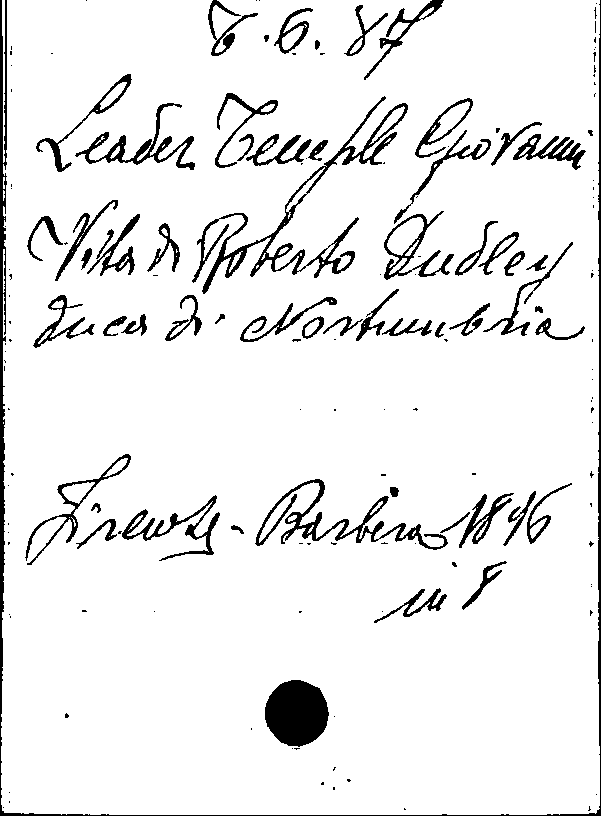 6.6.87
Leader Temple Giovanni
Vita di Roberto Dudley
duca di Nortumbria
Firenze - Barbera 1896
in 8